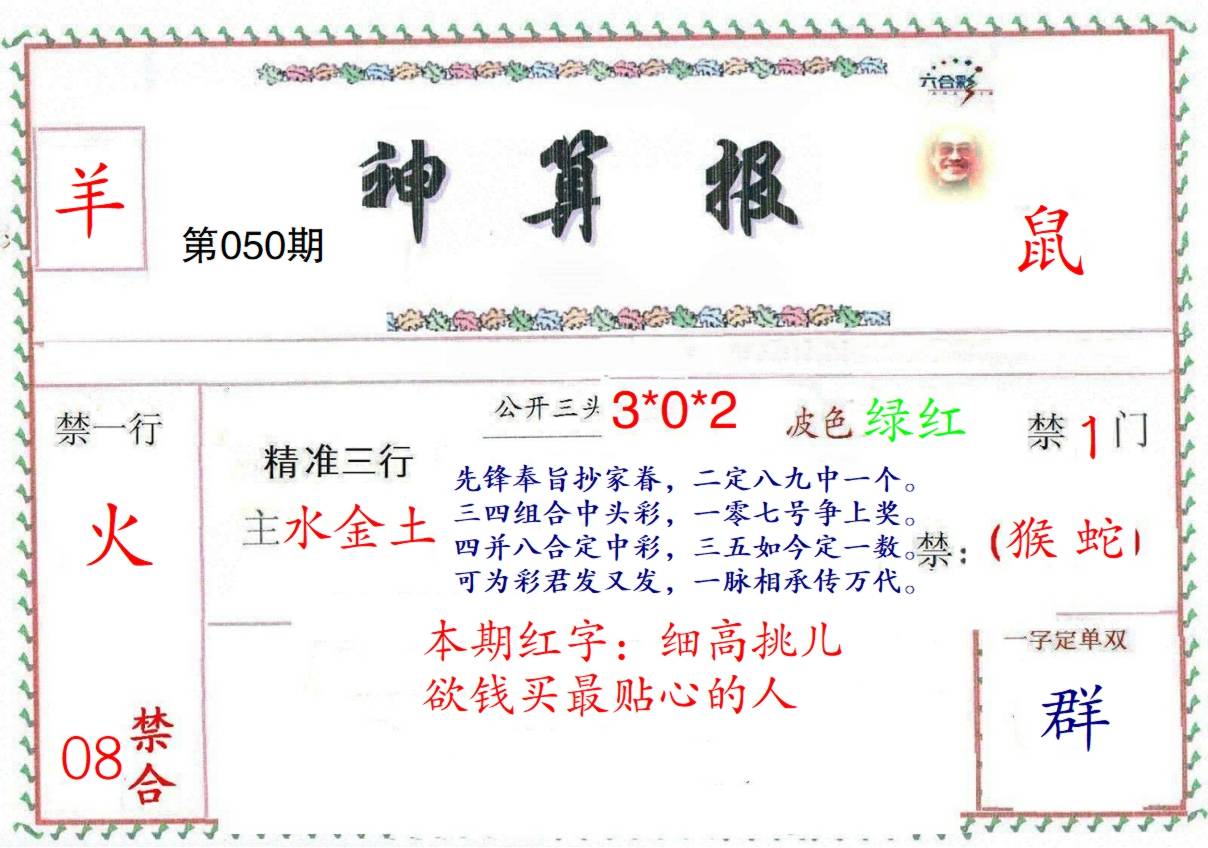 六合彩
羊
神算报
第050期
鼠
禁一行
火
08
禁合
精准三行
主水金土
公开三头 3*0*2
波色 绿红
禁1门
先锋奉旨抄家眷，二定八九中一个。
三四组合中头彩，一零七号争上奖。
四并八合定中彩，三五如今定一数。
可为彩君发又发，一脉相承传万代。
禁：（猴 蛇）
本期红字：细高挑儿
欲钱买最贴心的人
一字定单双
群